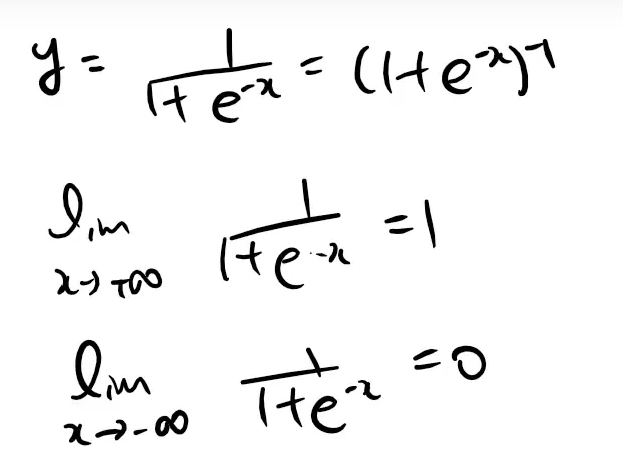 y = 1/(1 + e^{-x}) = (1+e^{-x})^{-1}
lim_{x→+∞} 1/(1+e^{-x}) = 1
lim_{x→-∞} 1/(1+e^{-x}) = 0